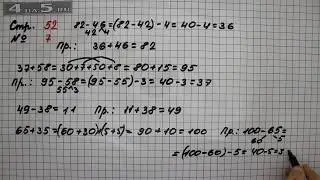 4НА5.RU
Стр. 52   82-46=(82-42)-4=40-4=36
42 4
№ 7   Пр.: 36+46=82
37+58=30+7+50+8=80+15=95
Пр.: 95-58=(95-55)-3=40-3=37
55 3
49-38=11   Пр.: 11+38=49
65+35=(60+30)+(5+5)=90+10=100   Пр.: 100-65=
60 5
=(100-60)-5=40-5=3